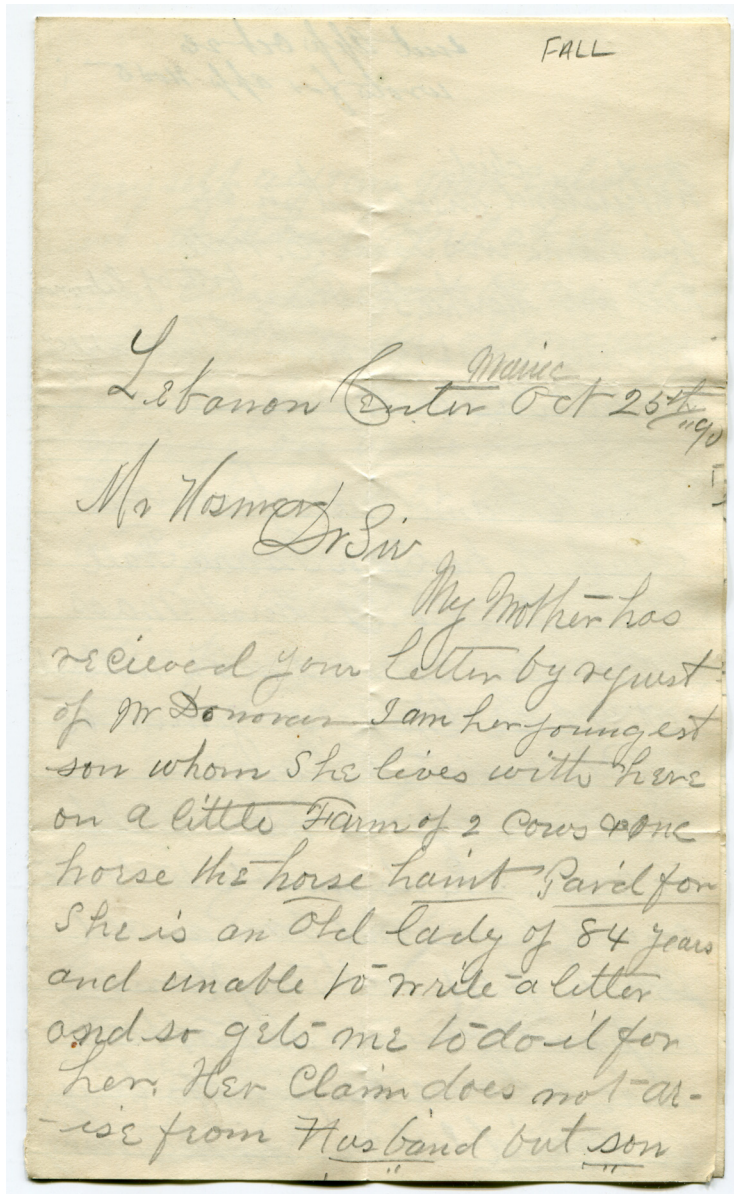 FALL
Maine
Lebanon Center Oct 25th
"90
Mr Hosmer
Dr Sir
My Mother has
recieved your letter by request
of Mr Donovan I am her youngest
son whom she lives with here
on a little Farm of 2 Cows & one
horse the horse haint Paid for
She is an Old lady of 84 years
and unable to write a letter
and so gets me to do it for
her. Her Claim does not ar-
-ise from Husband but son